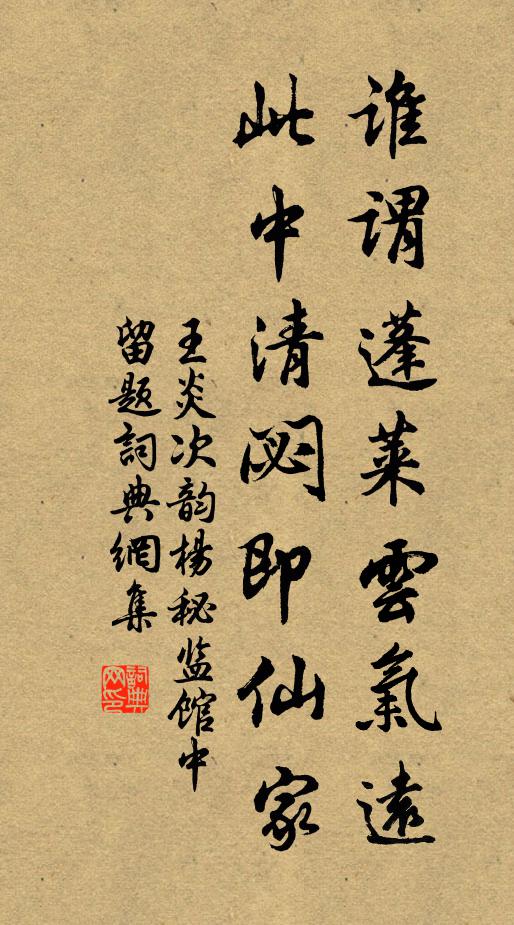 誰謂蓬萊雲氣遠
此中清閟即仙家
王炎次韵楊秘监馆中
留题詞典網集
詞典网印